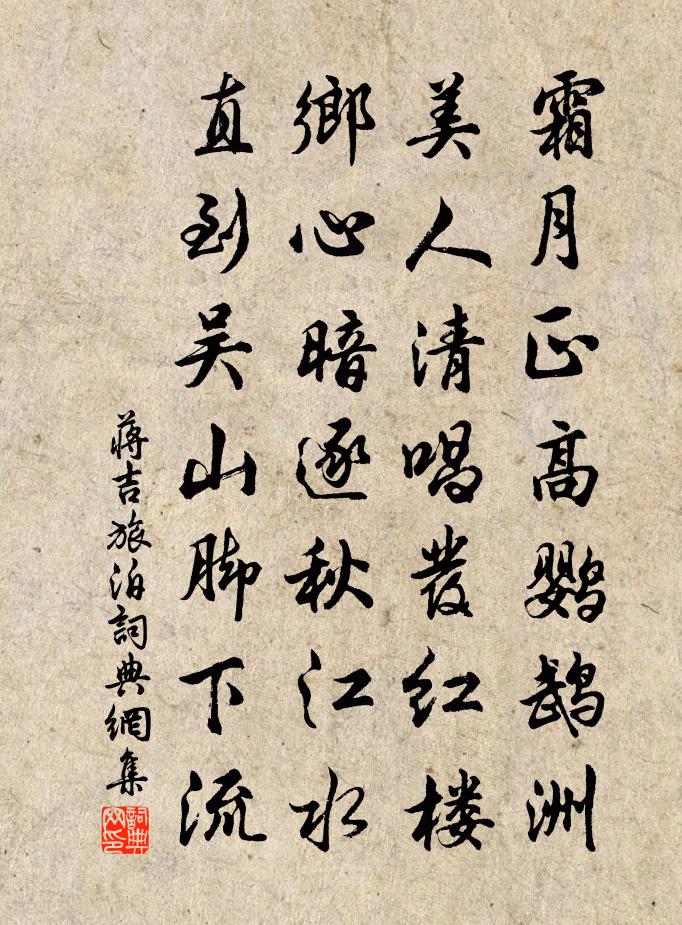 霜月正高鹦鹉洲
美人清唱發红楼
鄉心暗逐秋江水
直到吴山脚下流
蒋吉旅泊詞典網集
詞典网印